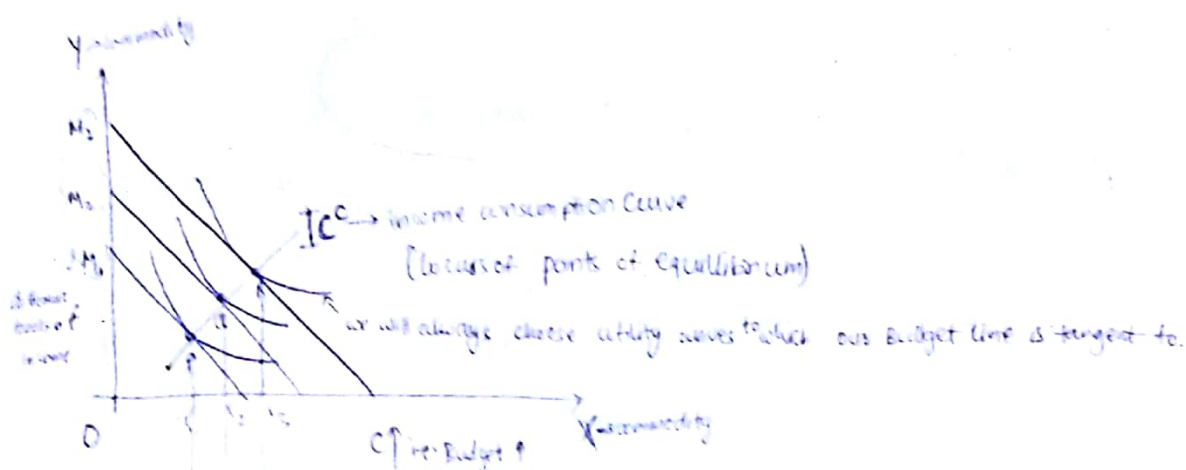 Y commodity
M3
M2
M1
different
levels of
income
ICC → income consumption Curve
(locus of points of Equillibrium)
we will always choose utility curves to which our Budget line is tangent to.
R
Q
P
O
x2 x3
X commodity
C↑ ie. Budget ↑